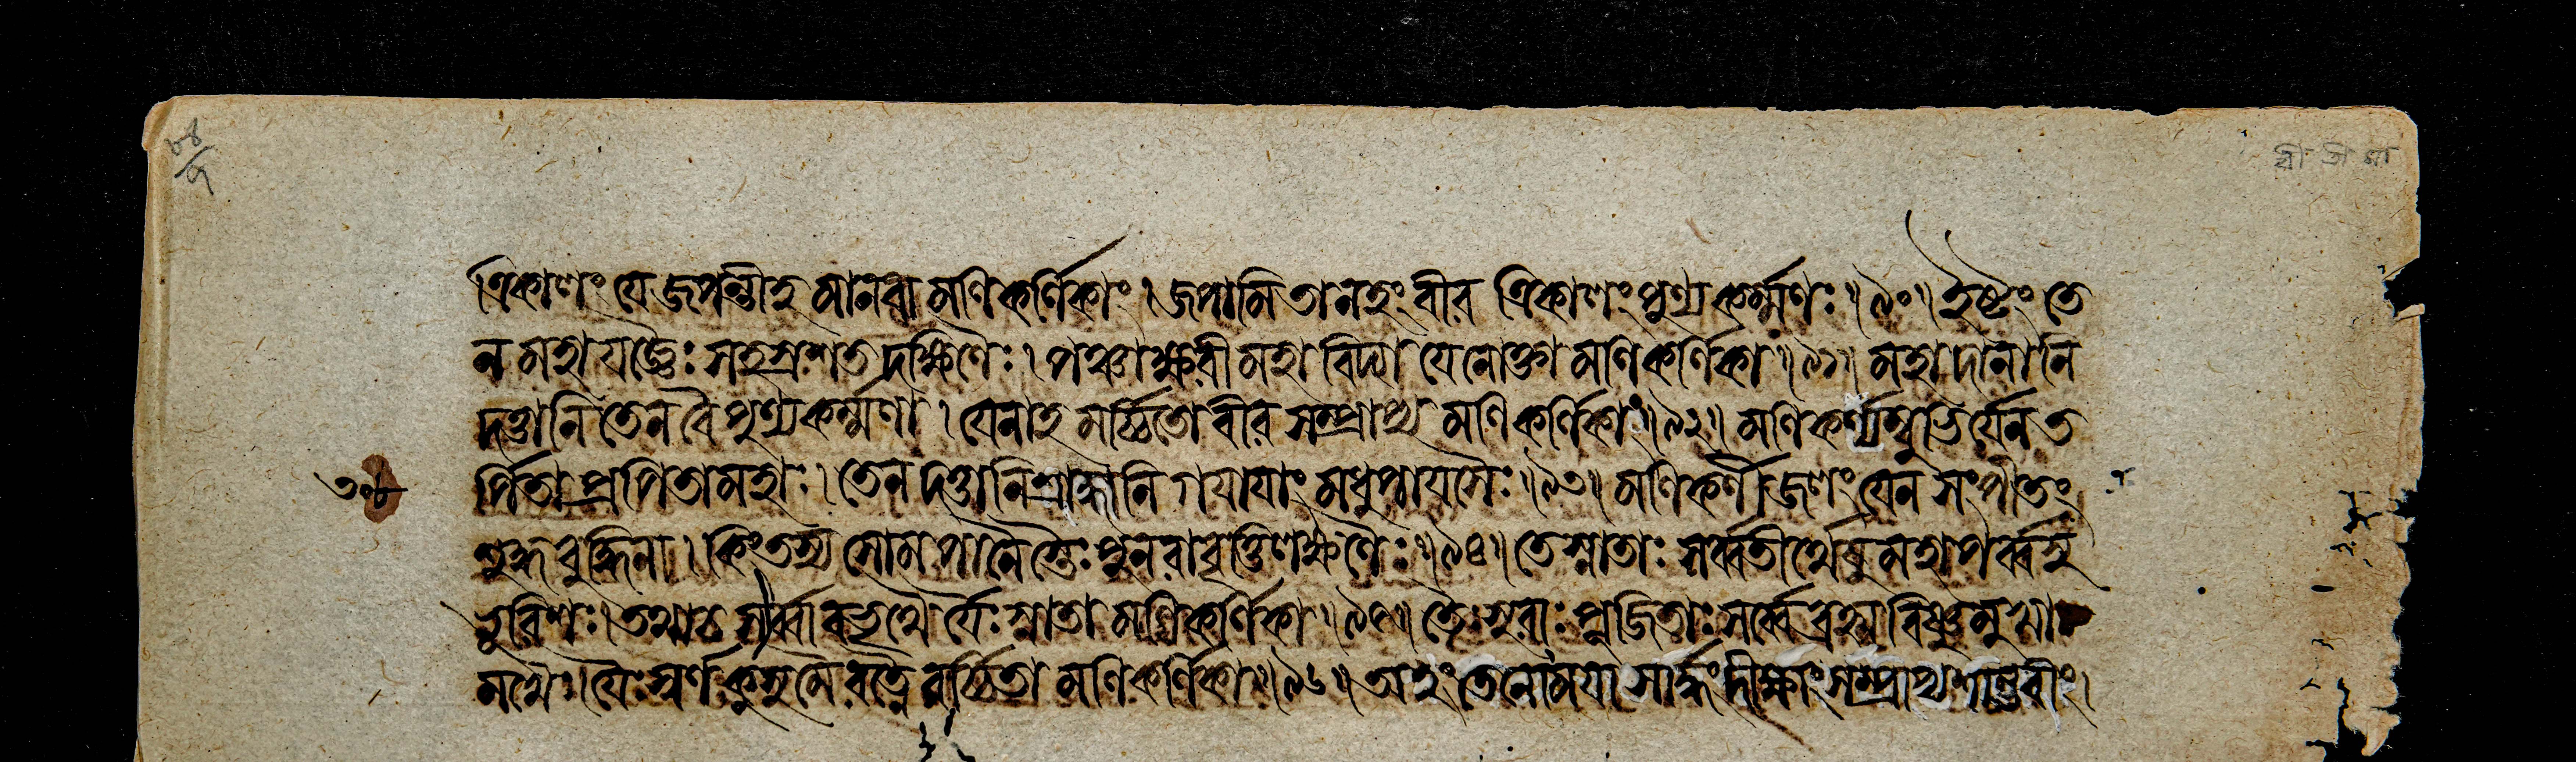 ত্রিকালং যে জপন্তীহ মানবা মণিকর্ণিকাং । জপামি তানহং বীর ত্রিকালং পুণ্যকর্ম্মণঃ ॥ ৯০ ॥ ইষ্টং তে
ন মহাযজ্ঞৈঃ সহস্রশতদক্ষিণৈঃ । পঞ্চাক্ষরী মহাবিদ্যা যেনোক্তা মণিকর্ণিকা ॥ ৯১ ॥ মহাদানানি
দত্তানি তেন বৈ পুণ্যকর্ম্মণা । যেনাহমর্চ্চিতো বীর সম্প্রাপ্য মণিকর্ণিকাং ॥ ৯২ ॥ মণিকর্ণ্যম্বুভির্যেন ত
র্পিতা প্রপিতামহাঃ । তেন দত্তানি শ্রাদ্ধানি গয়ায়াং মধুপায়সৈঃ ॥ ৯৩ ॥ মণিকর্ণীজলং যেন সংপীতং
শুদ্ধবুদ্ধিনা । কিং তস্য সোমপানৈস্তৈঃ পুনরাবৃত্তিলক্ষণৈঃ ॥ ৯৪ ॥ তে স্নাতাঃ সর্ব্বতীর্থেষু মহাপর্ব্বসু
ভূরিশঃ । তথাচ সর্ব্বাবভৃথৈর্যৈঃ স্নাতা মণিকর্ণিকা ॥ ৯৫ ॥ তৈঃ সুরাঃ পূজিতাঃ সর্ব্বে ব্রহ্মবিষ্ণুমুখা
মখৈঃ । যৈঃ স্বর্ণকুসুমৈরত্নৈরর্চ্চিতা মণিকর্ণিকা ॥ ৯৬ ॥ অহং তেনোময়া সার্দ্ধং দীক্ষাং সম্প্রাপ্য শাম্ভবীং ।
৩০৮